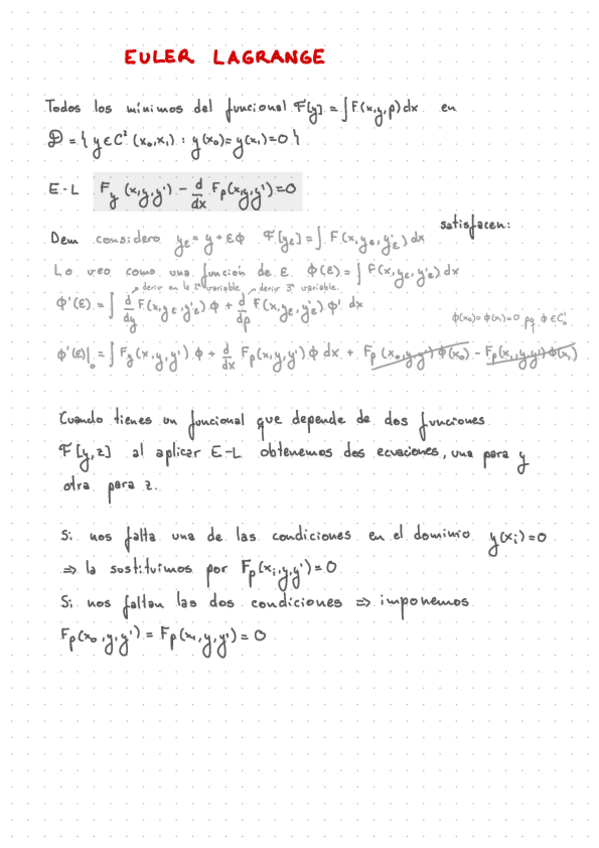 EULER LAGRANGE
Todos los mínimos del funcional F[y] = ∫ F(x,y,p) dx en
D = { y ∈ C² (x₀,x₁) : y(x₀) = y(x₁) = 0 }
E-L F_y (x,y,y') - d/dx F_p(x,y,y') = 0
satisfacen:
Dem considero y_ε = y + εϕ F[y_ε] = ∫ F(x,y_ε,y'_ε) dx
Lo veo como una función de ε. ϕ(ε) = ∫ F(x,y_ε,y'_ε) dx
→ derivr en la 2ª variable → derivr 3ª variable.
ϕ'(ε) = ∫ d/dy F(x,y_ε,y'_ε) ϕ + d/dp F(x,y_ε,y'_ε) ϕ' dx
ϕ(x₀) = ϕ(x₁) = 0 pq ϕ ∈ C₀^∞
ϕ'(ε)|₀ = ∫ F_y(x,y,y') ϕ + d/dx F_p(x,y,y') ϕ dx + F_p (x₀,y,y') ϕ(x₀) - F_p(x₁,y,y') ϕ(x₁)
Cuando tienes un funcional que depende de dos funciones
F[y,z] al aplicar E-L obtenemos dos ecuaciones, una para y
otra para z.
Si nos falta una de las condiciones en el dominio y(xᵢ) = 0
⇒ la sustituimos por F_p(xᵢ,y,y') = 0
Si nos faltan las dos condiciones ⇒ imponemos
F_p(x₀,y,y') = F_p(x₁,y,y') = 0